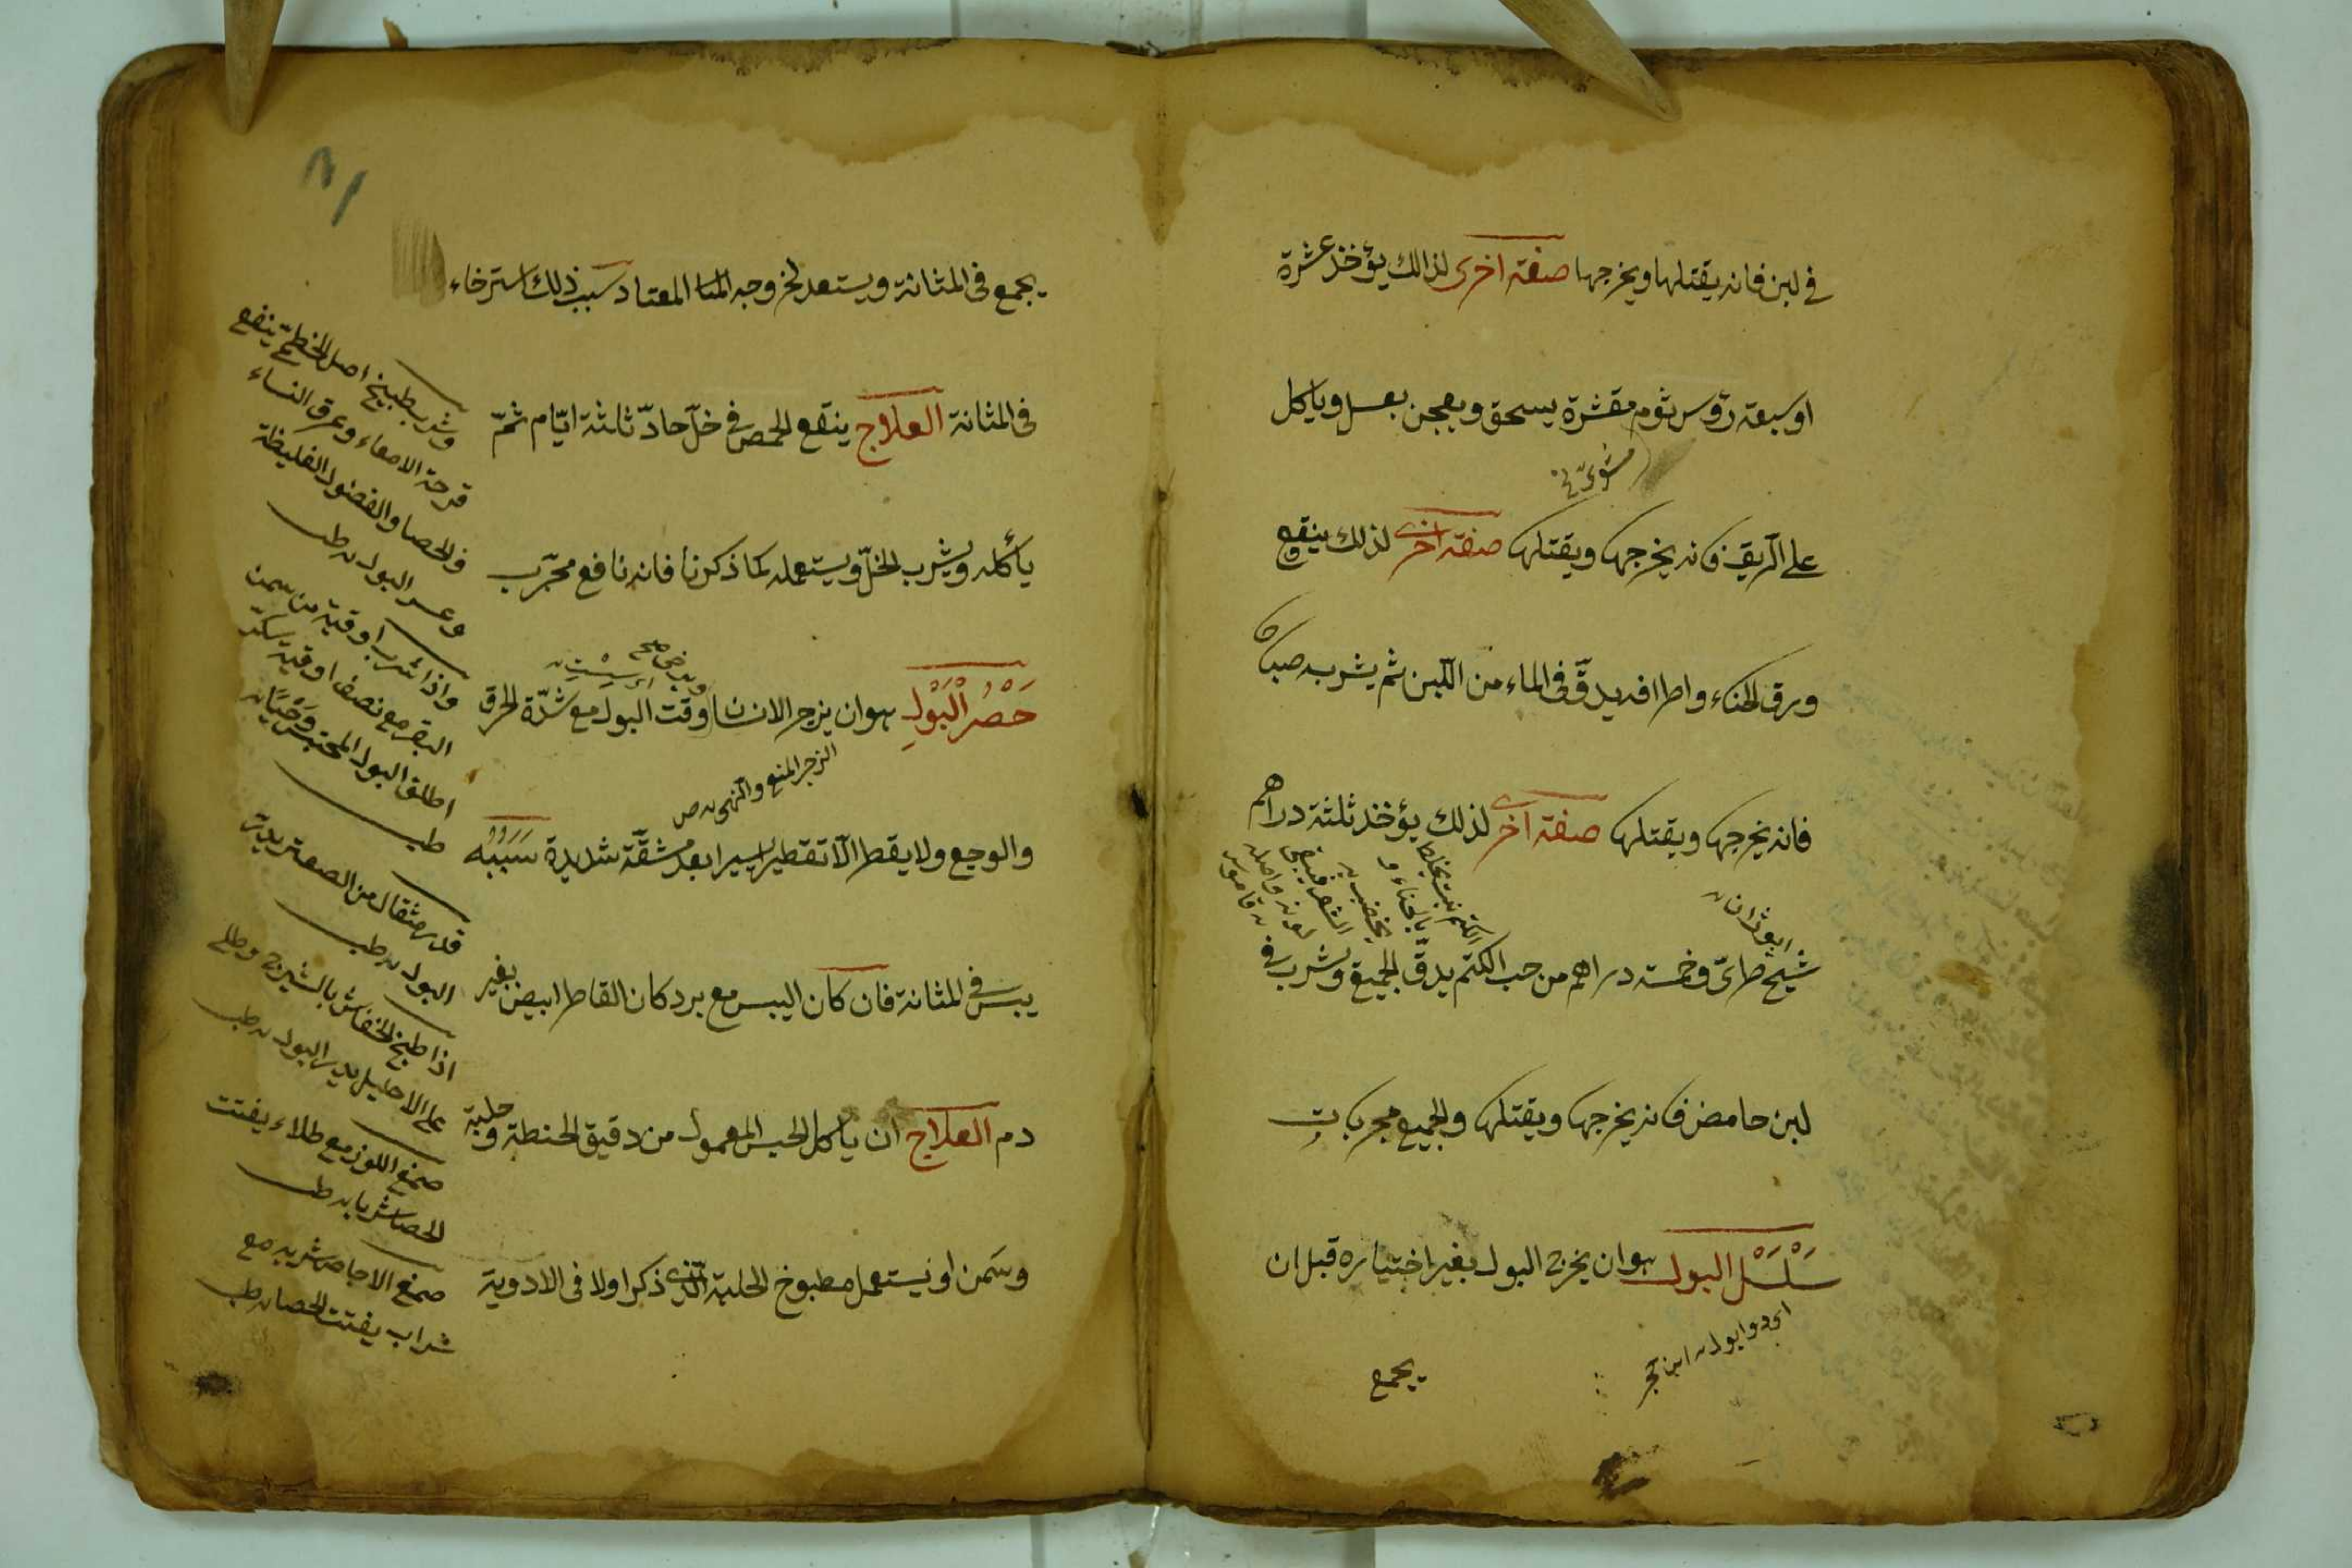 في لبن فانه يقتلها ويخرجها صفة اخرى لذالك يؤخذ عشرة
او سبعة رؤوس ثوم مقشرة يسحق ويعجن بعسل وياكل
على الريق فانه يخرجها ويقتلها صفة اخرى لذلك ينقع
ورق الحناء واطرافه يدقّ في الماء من اللبن ثم يشربه صباحا
فانه يخرجها ويقتلها صفة اخرى لذلك يؤخذ ثلثة دراهم
الكتم نبت يخلط
بالحناء و
يخضب به
الشعر فيبقى
لونه واصله
قاموس
شيح طرىّ وخمسة دراهم من حب الكتم يدقّ الجميع ويشرب في
لبن حامض فانه يخرجها ويقتلها والجميع مجربات
سَلْسَلُ البول هو ان يخرج البول بغير اختياره قبل ان
ابن حجر
يجمع
يجمع في المثانة ويستعد لخروجه المعتاد سبب ذلك استرخاء
في المثانة العلاج ينقع الحمص في خلّ حادّ ثلثة ايّام ثمّ
يأكله ويشرب الخلّ ويستعمله كما ذكرنا فانه نافع مجرّب
حَصْرُ الْبَوْلِ هو ان يزجر الانسان وقت البول مع شدّة الحرق
الزجر المنع والنهى ص
والوجع ولا يقطر الّا تقطيرا يسيرا بعد مشقّة شديدة سَبَبُه
يبس في المثانة فان كان اليبس مع برد كان القاطر ابيض بغير
دم العلاج ان ياكل الحيس المعمول من دقيق الحنطة وحلبة
وسَمن او يستعمل مطبوخ الحلبة الّذى ذكر اولا في الادوية
وشرب طبيخ اصل الخطمىّ ينفع
قرحة الامعاء وعرق النساء
والحصا والفضول الغليظة
وعسر البول طب
واذا شرب اوقية من سمن
البقر مع نصف اوقية سكر
اطلق البول المحتبس
طب
قدر مثقال من الصعتر يدرّ
البول طب
اذا طبخ الخفاش بالشيرج وطلي
على الاحليل يدر البول طب
صمغ اللوز مع طلاء يفتت
الحصا شربا طب
صمغ الاجاص شربه مع
شراب يفتت الحصا طب